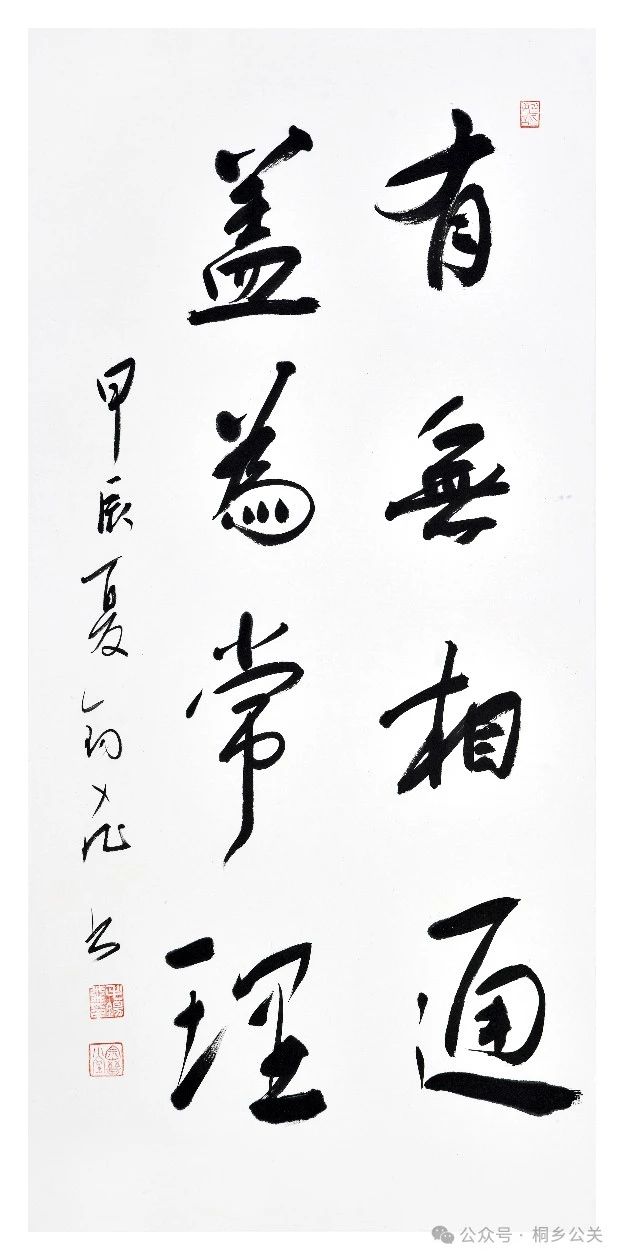 有無相通
盖為常理
甲辰夏
公众号·桐乡公关